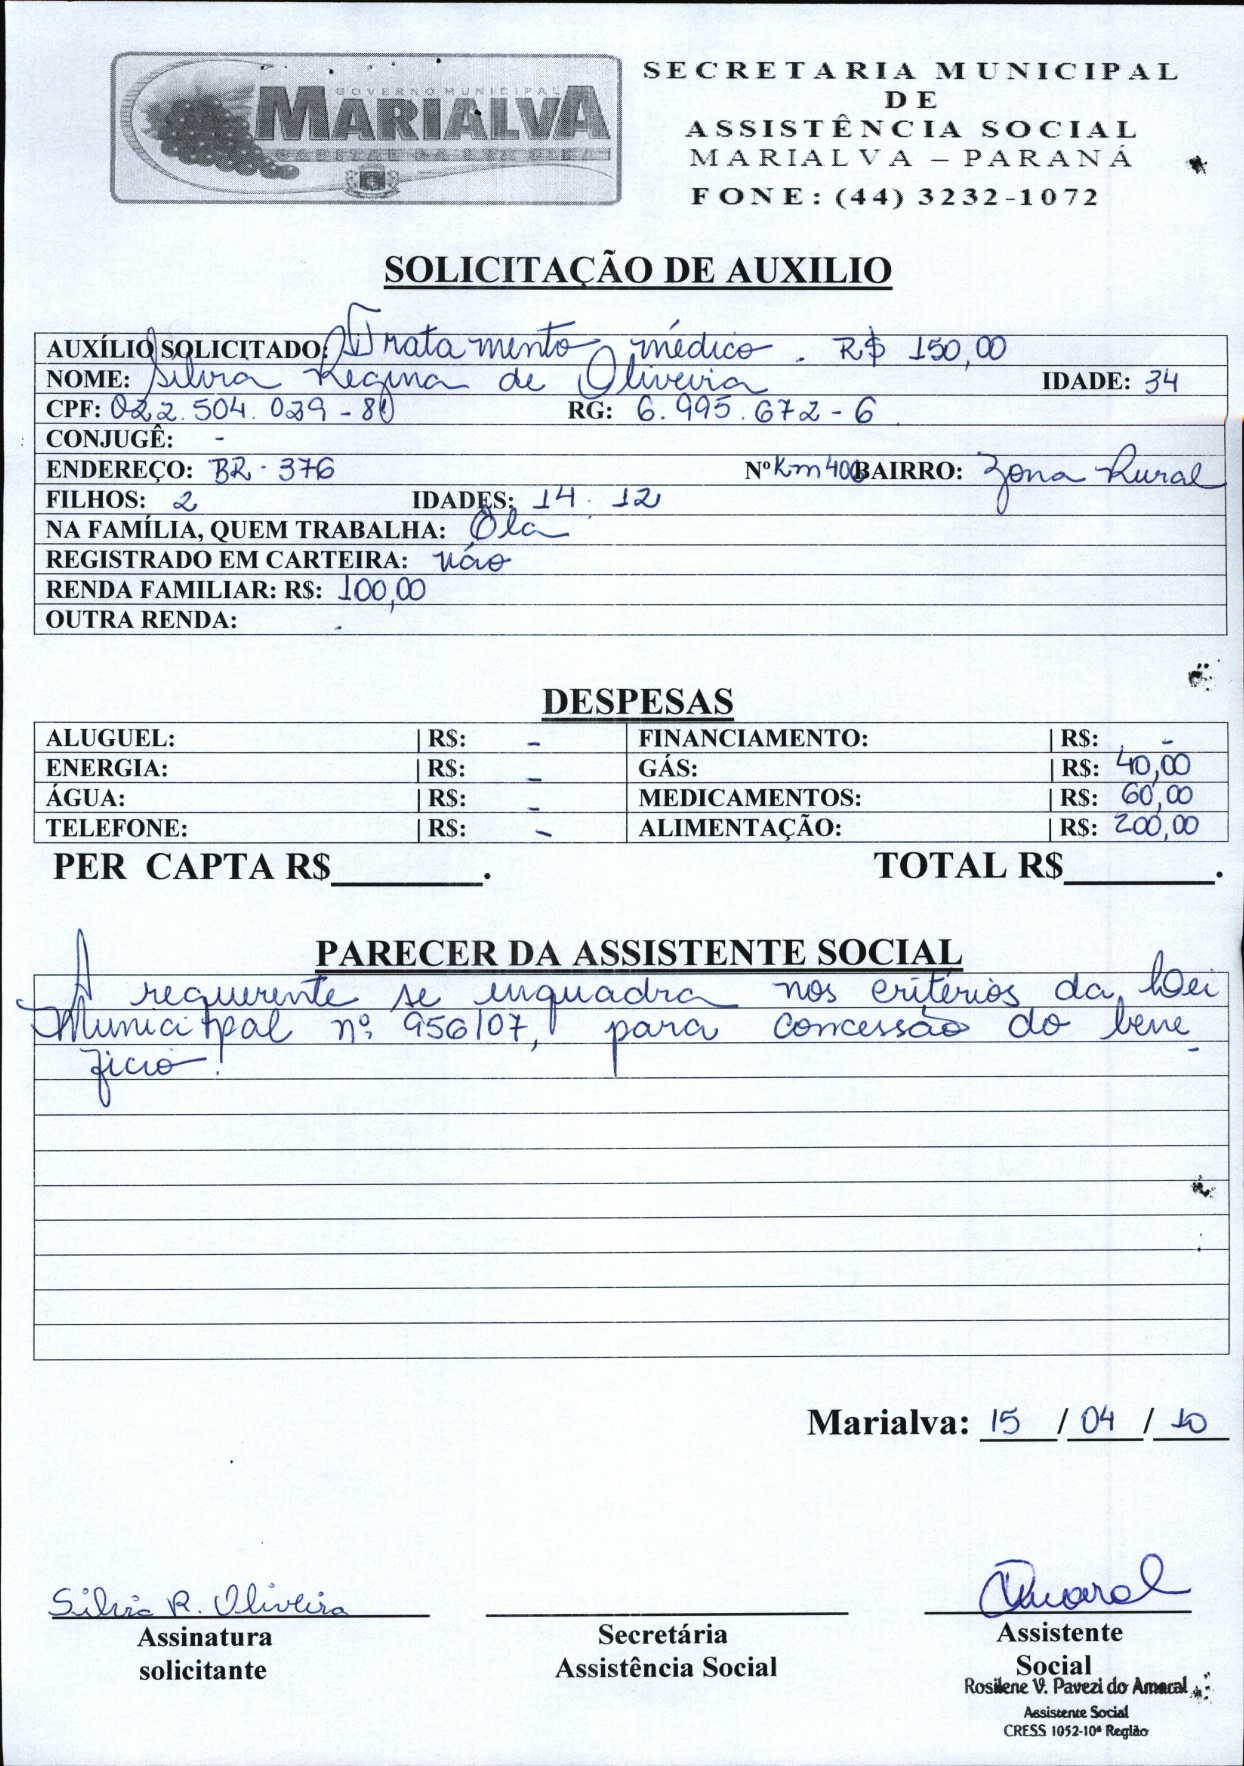 GOVERNO MUNICIPAL
MARIALVA
CAPITAL DA UVA FINA
SECRETARIA MUNICIPAL
DE
ASSISTÊNCIA SOCIAL
MARIALVA – PARANÁ
FONE: (44) 3232-1072
SOLICITAÇÃO DE AUXILIO
AUXÍLIO SOLICITADO: Tratamento médico. R$ 150,00
NOME: Silvia Regina de Oliveira IDADE: 34
CPF: 022.504.029-80 RG: 6.995.672-6
CONJUGÊ: -
ENDEREÇO: BR-376 Nº Km 400 BAIRRO: Zona Rural
FILHOS: 2 IDADES: 14. 12
NA FAMÍLIA, QUEM TRABALHA: Ela
REGISTRADO EM CARTEIRA: não
RENDA FAMILIAR: R$: 100,00
OUTRA RENDA: -
DESPESAS
ALUGUEL: | R$: - FINANCIAMENTO: | R$: -
ENERGIA: | R$: - GÁS: | R$: 40,00
ÁGUA: | R$: - MEDICAMENTOS: | R$: 60,00
TELEFONE: | R$: - ALIMENTAÇÃO: | R$: 200,00
PER CAPTA R$________. TOTAL R$________.
PARECER DA ASSISTENTE SOCIAL
A requerente se enquadra nos critérios da Lei
Municipal nº 956/07, para concessão do bene-
ficio.
Marialva: 15 / 04 / 10
Silvia R. Oliveira Amaral
Assinatura Secretária Assistente
solicitante Assistência Social Social
Rosilene V. Pavezi do Amaral
Assistente Social
CRESS 1052-10ª Região